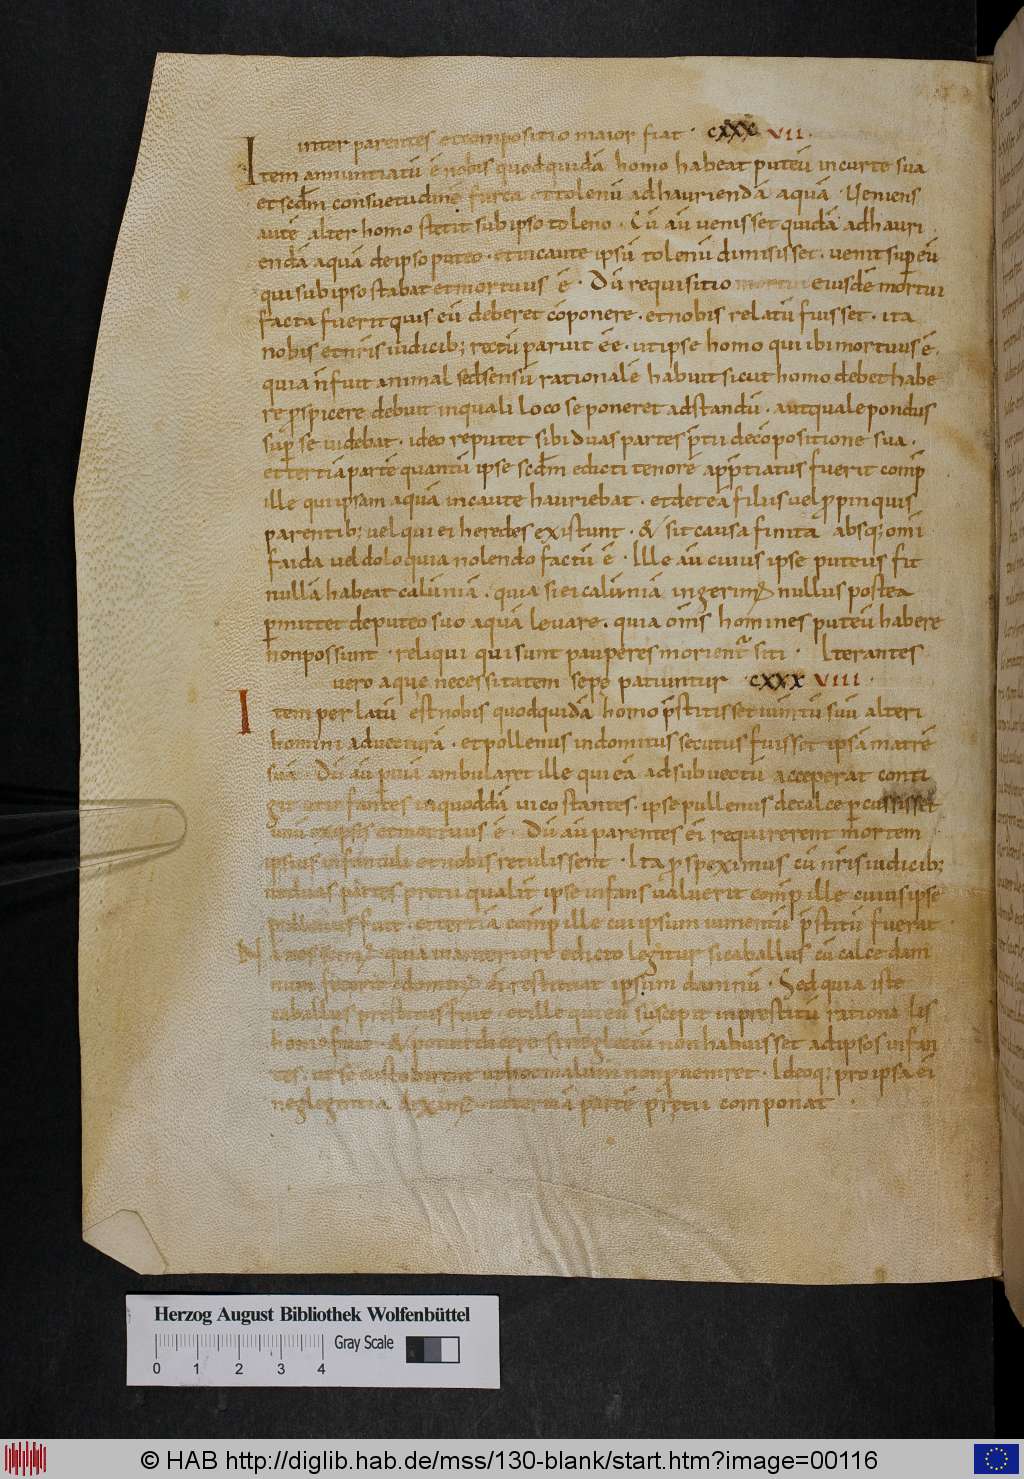 inter parentes et compositio maior fiat · cxxx vii ·
Item annuntiatū ē nobis quod quidā homo habeat puteū in curte sua
et sedm consuetudinē furca et tolenū ad hauriendā aquā · Veniens
autē alter homo stetit sub ipso toleno · Cū aū uenisset quidā ad hauri
endā aquā de ipso puteo · et incaute ipsū tolenū dimisisset · uenit sup eū
qui sub ipso stabat et mortuus ē · Dū requisitio mortui eiusdē mortui
facta fuerit quis eū deberet cōponere · et nobis relatū fuisset · ita
nobis et nr̄is iudicib; rectū paruit eē · ut ipse homo qui ibi mortuus ē ·
quia n̄ fuit animal sed sensū rationalē habuit sicut homo debet habe
re p̱spicere debuit in quali loco se poneret ad standū · aut quale pondus
sup̄ se uidebat · ideo reputet sibi duas partes p̄tii de cōpositione sua ·
et tertiā partē quantū ipse scd̄m edicti tenorē app̄tiatus fuerit comp̄
ille qui ipsam aquā incaute hauriebat · et det eā filiis uel p̱pinquis
parentib; uel qui ei heredes existunt · & sit causa finita absq; omī
faida uel dolo quia nolendo factū ē · Ille aū cuius ipse puteus fit
nullā habeat calūniā · quia si ei calūniā ingerim; nullus postea
p̱mittet de puteo suo aquā leuare · quia om̄s homines puteū habere
non possunt · reliqui qui sunt pauperes morient̄ siti · Iterantes
uero aque necessitatem sepe patiuntur · cxxx viii ·
Item per latū est nobis quod quidā homo p̄stitisset ium̄tū suū alteri
homini ad uecturā · et pollenus indomitus secutus fuisset ipsā matrē
suā · Dū aū p̱ uiā ambularet ille qui eā ad subuectū acceperat conti
git ut infantes in quoddā uico stantes · ipse pullenus de calce p̱cussisset
unū ex ipsis et mortuus ē · Dū aū parentes ei requirerent mortem
ipsius infantuli et nobis retulissent · Ita p̱speximus cū nr̄is iudicib;
ut duas partes pretii qualit̄ ipse infans ualuerit comp̄ ille cuius ipse
pullenus fuit · et tertiā comp̄ ille cui ipsum iumentū p̄stitū fuerat ·
quia in anteriore edicto legitur si caballus cū calce dam
num fecerit · domin; ei restituat ipsum damnū · Sed quia iste
caballus prestitus fuit · et ille qui eū suscepit in prestitū rationalis
homo fuit · & potuit dicere si neglectū non habuisset ad ipsos infan
tes · ut se custodirent ut hoc malum non p̱ueniret · Ideoq; pro ipsa eī
neglegentia diximus ut tertiā partē pretii componat ·
Herzog August Bibliothek Wolfenbüttel
Gray Scale
0 1 2 3 4
© HAB http://diglib.hab.de/mss/130-blank/start.htm?image=00116